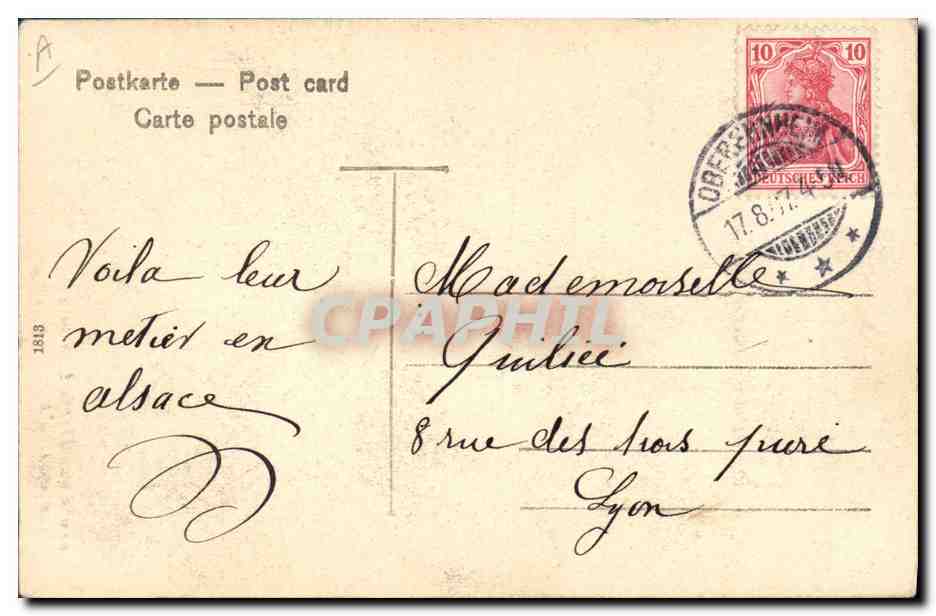 A
Postkarte — Post card
Carte postale
10 10
DEUTSCHES REICH
OBEREHNHEIM
17.8.07. 4-5N
Voila leur
metier en
alsace
Mademoiselle
8 rue des trois
Lyon
1813
CPAPHIL